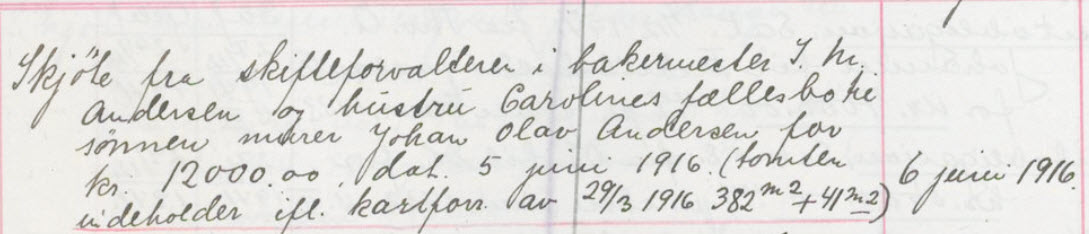 Skjöte fra skifteforvalteren i bakermester I. M.
Andersen og hustru Carolines fællesbo til
sønnen murer Johan Olav Andersen for
kr. 12000.00, dat. 5 juni 1916. (tomten 6 juni 1916.
indeholder ifl. kartforr. av 29/3 1916 382 m2 + 41 m2)